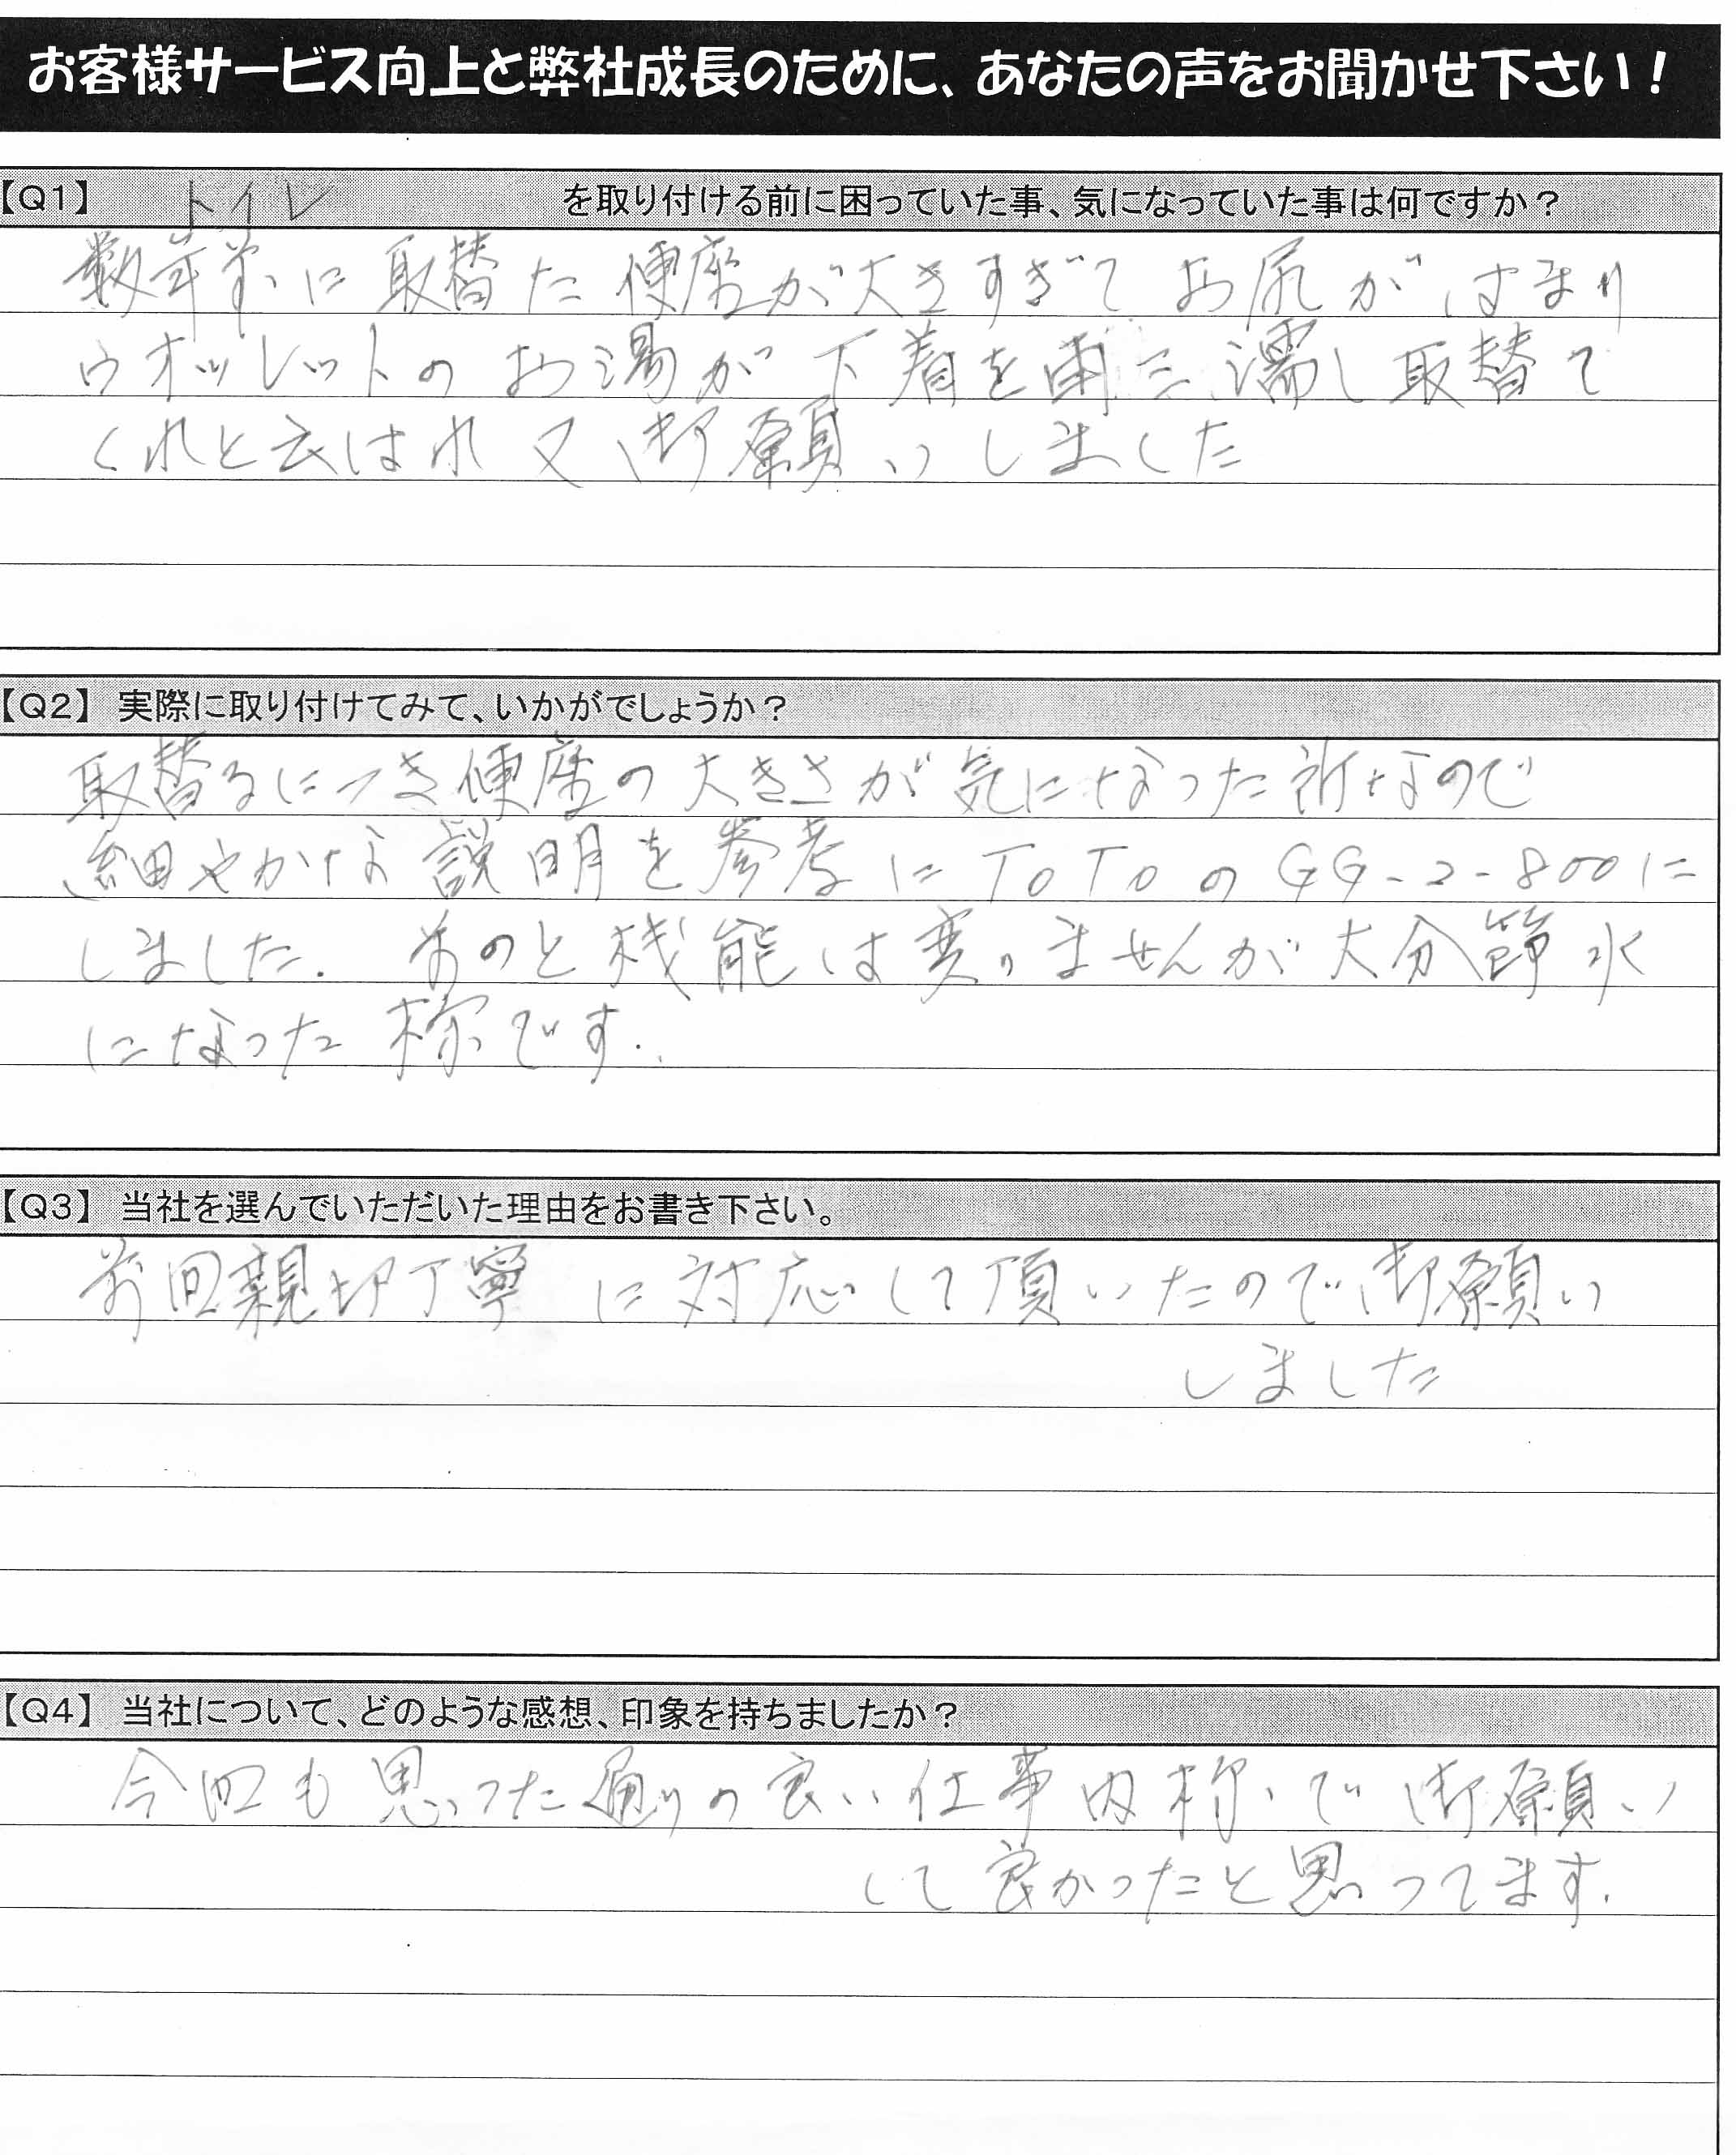 お客様サービス向上と弊社成長のために、あなたの声をお聞かせ下さい！
【Q1】 トイレ を取り付ける前に困っていた事、気になっていた事は何ですか？
数年前に取替た便座が大きすぎてお尻がはまり
ウオッレットのお湯が下着を再三濡し取替て
くれと云はれ又御願いしました
【Q2】 実際に取り付けてみて、いかがでしょうか？
取替るにつき便座の大きさが気になった所なので
細やかな説明を参考にTOTOのGG-2-800に
しました. 前のと機能は変りませんが大分節水
になった様です.
【Q3】 当社を選んでいただいた理由をお書き下さい。
前回親切丁寧に対応して頂いたので御願い
しました
【Q4】 当社について、どのような感想、印象を持ちましたか？
今回も思った通りの良い仕事内容で御願い
して良かったと思ってます.